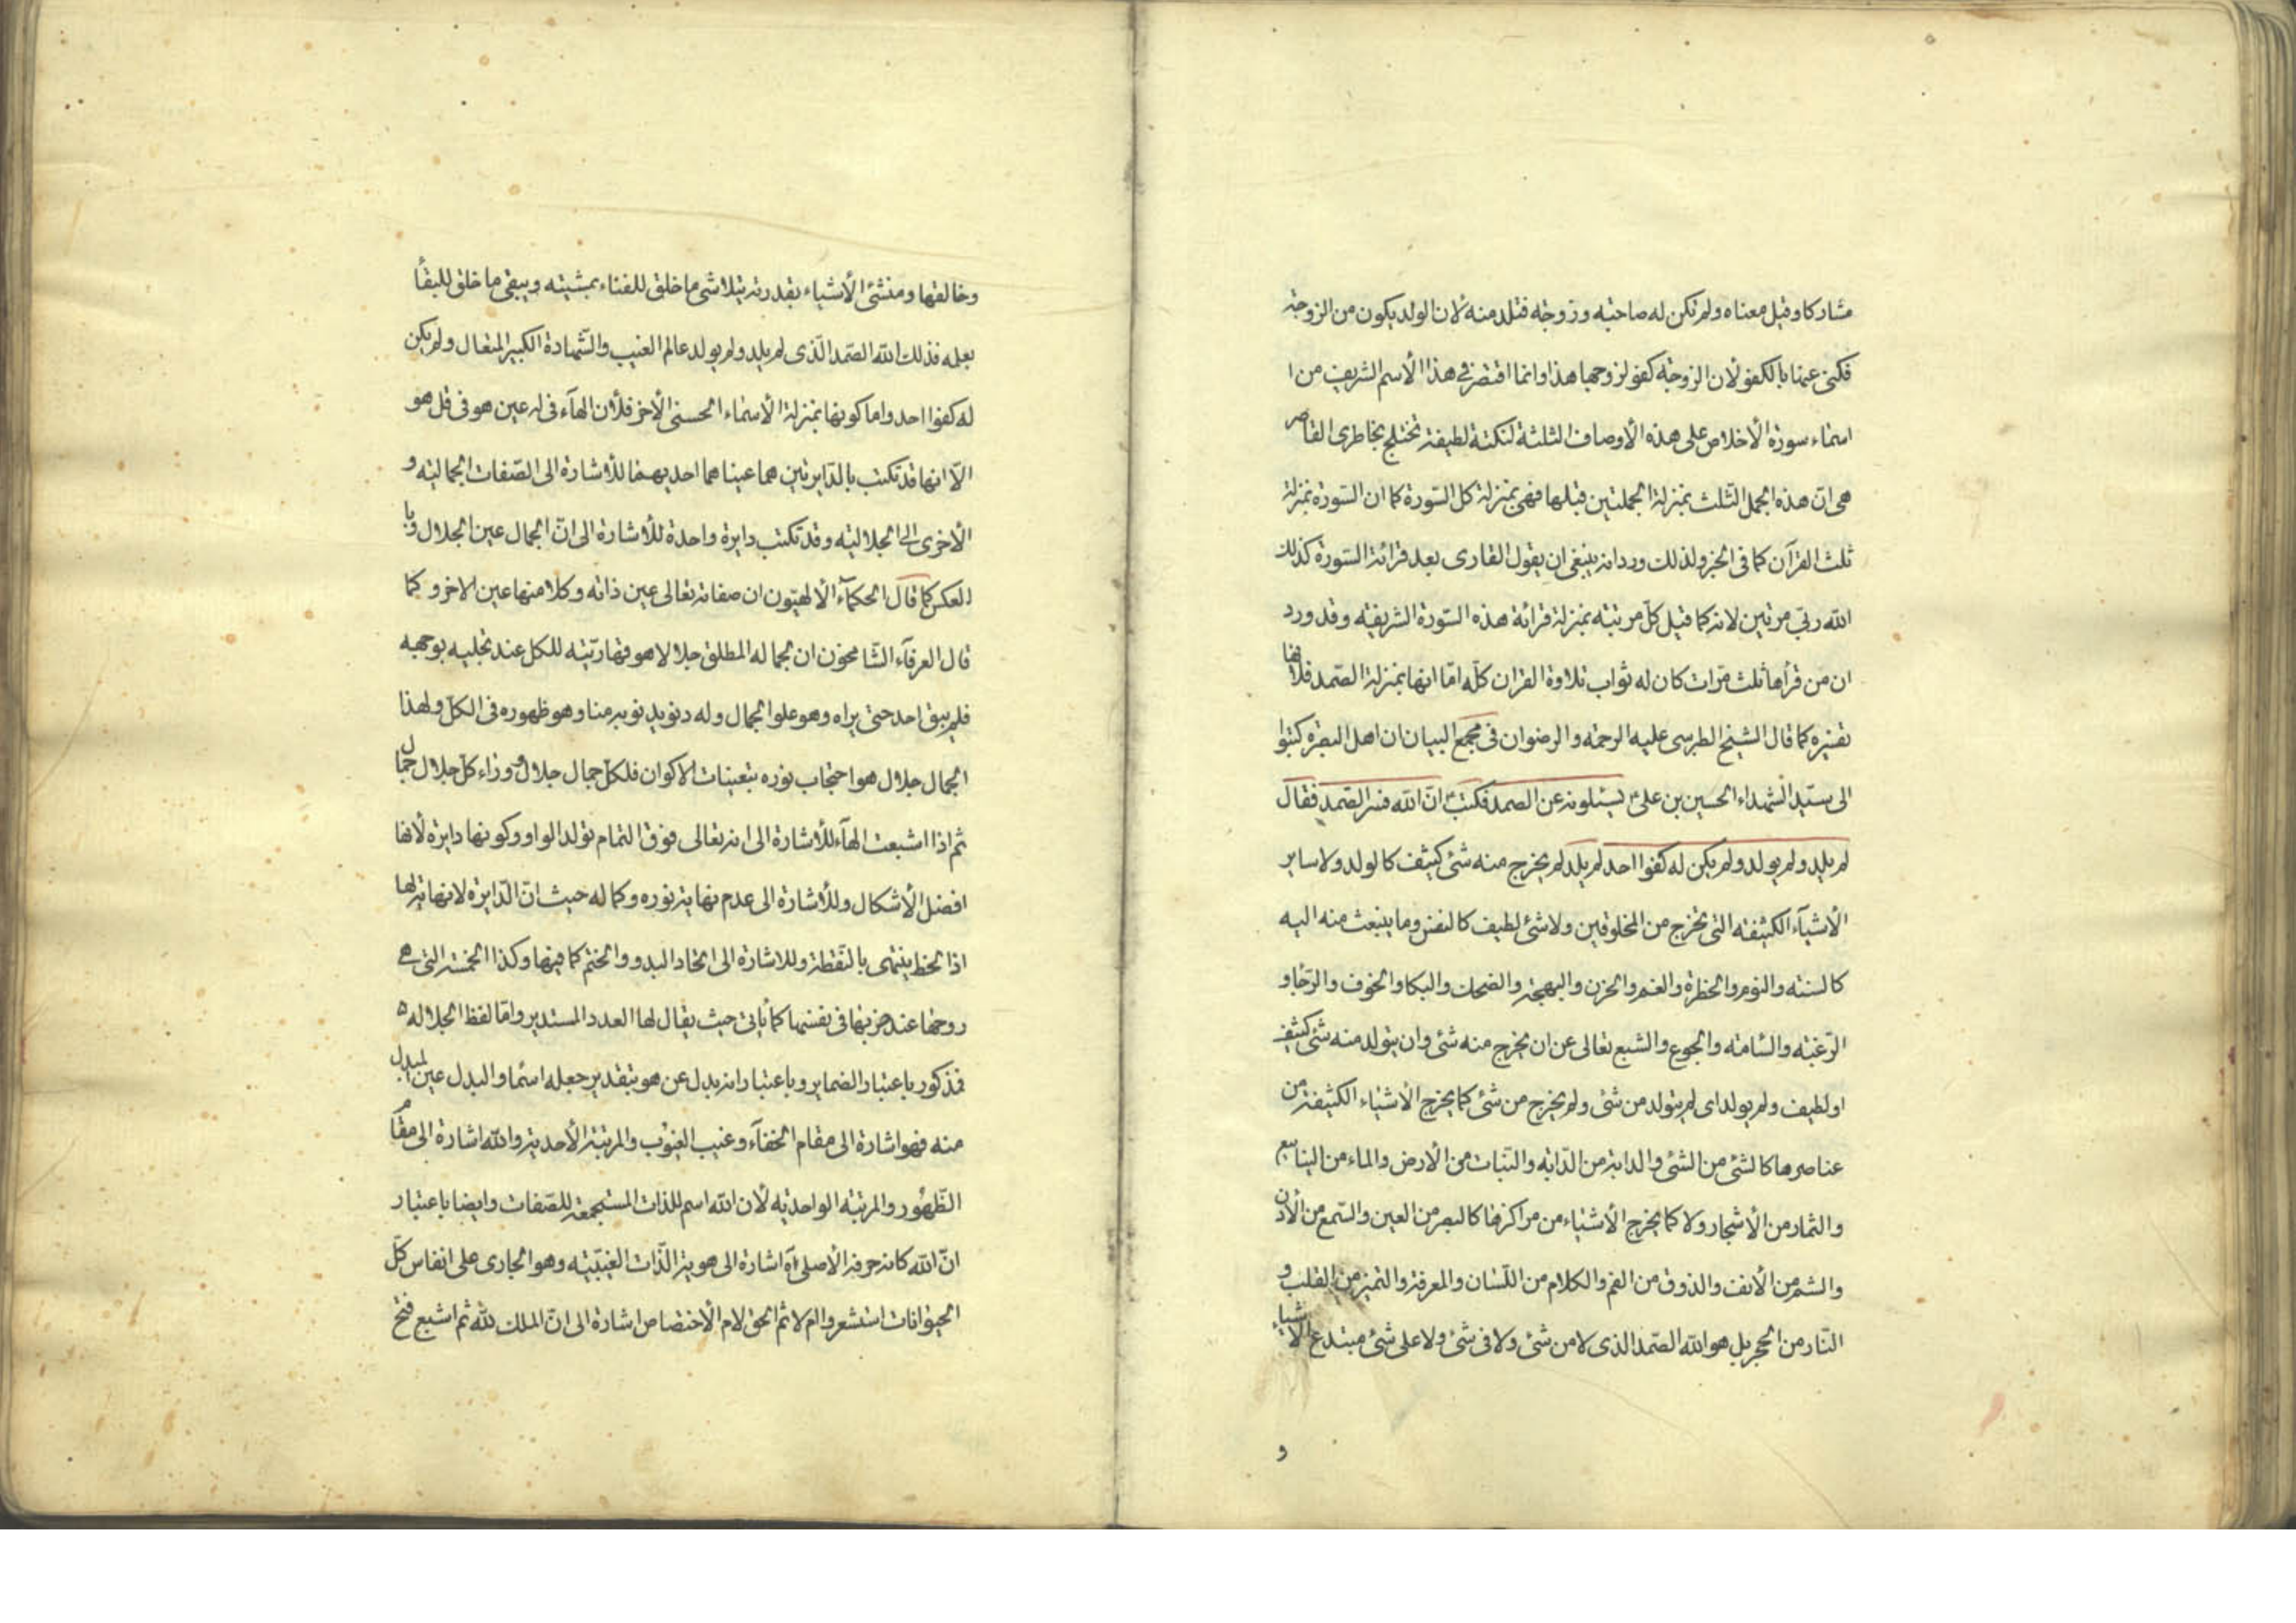 مشاركا وقيل معناه ولم تكن له صاحبته وزوجة فتلد منه لان الولد يكون من الزوجة
فكنى عنها بالكفو لأن الزوجة كفو لزوجها هذا وانما اقتصر فى هذا الأسم الشريف من ا
اسماء سورة الأخلاص على هذه الأوصاف الثلثة لنكتة لطيفة تختلج بخاطرى القاصر
هى انّ هذه الجمل الثلث بمنزلة الجملتين قبلها فهى بمنزلة كل السّورة كما ان السّورة بمنزلة
ثلث القرآن كما فى الخبر ولذلك ورد انه ينبغى ان يقول القارى بعد قرائة السّورة كذلك
الله ربّى مرتين لانه كما قيل كلّ مرتبة بمنزلة قرائة هذه السّورة الشريفة وقد ورد
ان من قرأها ثلث مرّات كان له ثواب تلاوة القران كلّه امّا انها بمنزلة الصّمد فلانها
تفسيره كما قال الشيخ الطبرسى عليه الرحمة والرضوان فى مجمع البيان ان اهل البصرة كتبوا
الى سيّد الشهداء الحسين بن علىّ يسئلونه عن الصمد فكتب انّ الله فسر الصّمد فقال
لم يلد ولم يولد ولم يكن له كفوا احد لم يلد لم يخرج منه شئ كثيف كالولد ولا ساير
الأشيآء الكثيفة التى تخرج من المخلوقين ولا شئ لطيف كالنفس وما ينبعث منه اليه
كالسنة والنوم والخطرة والغم والحزن والبهجة والضحك والبكا والخوف والرّجا و
الرّغبة والسّامة والجوع والشبع تعالى عن ان يخرج منه شئ وان يتولد منه شئ كثيف
او لطيف ولم يولد اى لم يتولد من شئ ولم يخرج من شئ كما يخرج الأشياء الكثيفة من
عناصرها كالشئ من الشئ والدابة من الدّابة والنّبات من الأرض والماء من الينابيع
والثمار من الأشجار ولا كما يخرج الأشياء من مراكزها كالبصر من العين والسّمع من الأذن
والشم من الأنف والذوق من الفم والكلام من اللّسان والمعرفة والتميز من القلب و
النّار من الحجر بل هو الله الصّمد الذى لا من شئ ولا فى شئ ولا على شئ مبتدع الأشياء
و
وخالقها ومنشئ الأشياء بقدرته يتلاشى ما خلق للفناء بمشيته ويبقى ما خلق للبقأ
بعلمه فذلك الله الصّمد الّذى لم يلد ولم يولد عالم الغيب والشّهادة الكبير المتعال ولم يكن
له كفوا احد واما كونها بمنزلة الأسماء الحسنى الأخر فلأن الهآء فى له عين هو فى قل هو
الّا انها قد تكتب بالدّايرتين هما عيناهما احديهما للأشارة الى الصّفات الجمالية و
الأخرى الى الجلالية وقد تكتب دايرة واحدة للأشارة الى انّ الجمال عين الجلال وبا
لعكس كما قال الحكمآء الألهيّون ان صفاته تعالى عين ذاته وكلا منها عين الاخر و كما
قال العرفآء الشّامخون ان لجماله المطلق جلالا هو قهاريّته للكل عند تجليه بوجهه
فلم يبق احد حتى يراه وهو علوا الجمال وله دنو يدنو به منا وهو ظهوره فى الكلّ ولهذا
الجمال جلال هو احتجاب نوره بتعينات الاكوان فلكلّ جمال جلال ووراء كلّ جلال جمال
ثم اذا اشبعت الهآء للأشارة الى انه تعالى فوق التمام تولد الواو وكونها دايرة لأنها
افضل الأشكال وللأشارة الى عدم نهاية نوره وكماله حيث انّ الدّايرة لا نهاية لها
اذا الخط ينتهى بالنّقطة وللاشارة الى اتحاد البدو والختم كما فيها وكذا الخمسة التى هى
روحها عند ضربها فى نفسها كما يأتى حيث يقال لها العدد المستدير وامّا لفظ الجلاله ٥
فمذكور باعتبار الضماير وباعتبار انه بدل عن هو بتقدير جعله اسما والبدل عين المبدل
منه فهو اشارة الى مقام الخفآء وغيب الغيوب والمرتبة الأحدية والله اشارة الى مقام
الظّهور والمرتبة الواحدية لأن الله اسم للذات المستجمعة للصّفات وايضا باعتبار
انّ الله كانه حرفه الأصلى آه اشارة الى هوية الذّات الغيبيّة وهو الجارى على انفاس كلّ
الحيوانات استشعروا ام لا ثم الحق لام الأختصاص اشارة الى انّ الملك لله ثم اشبع فتح